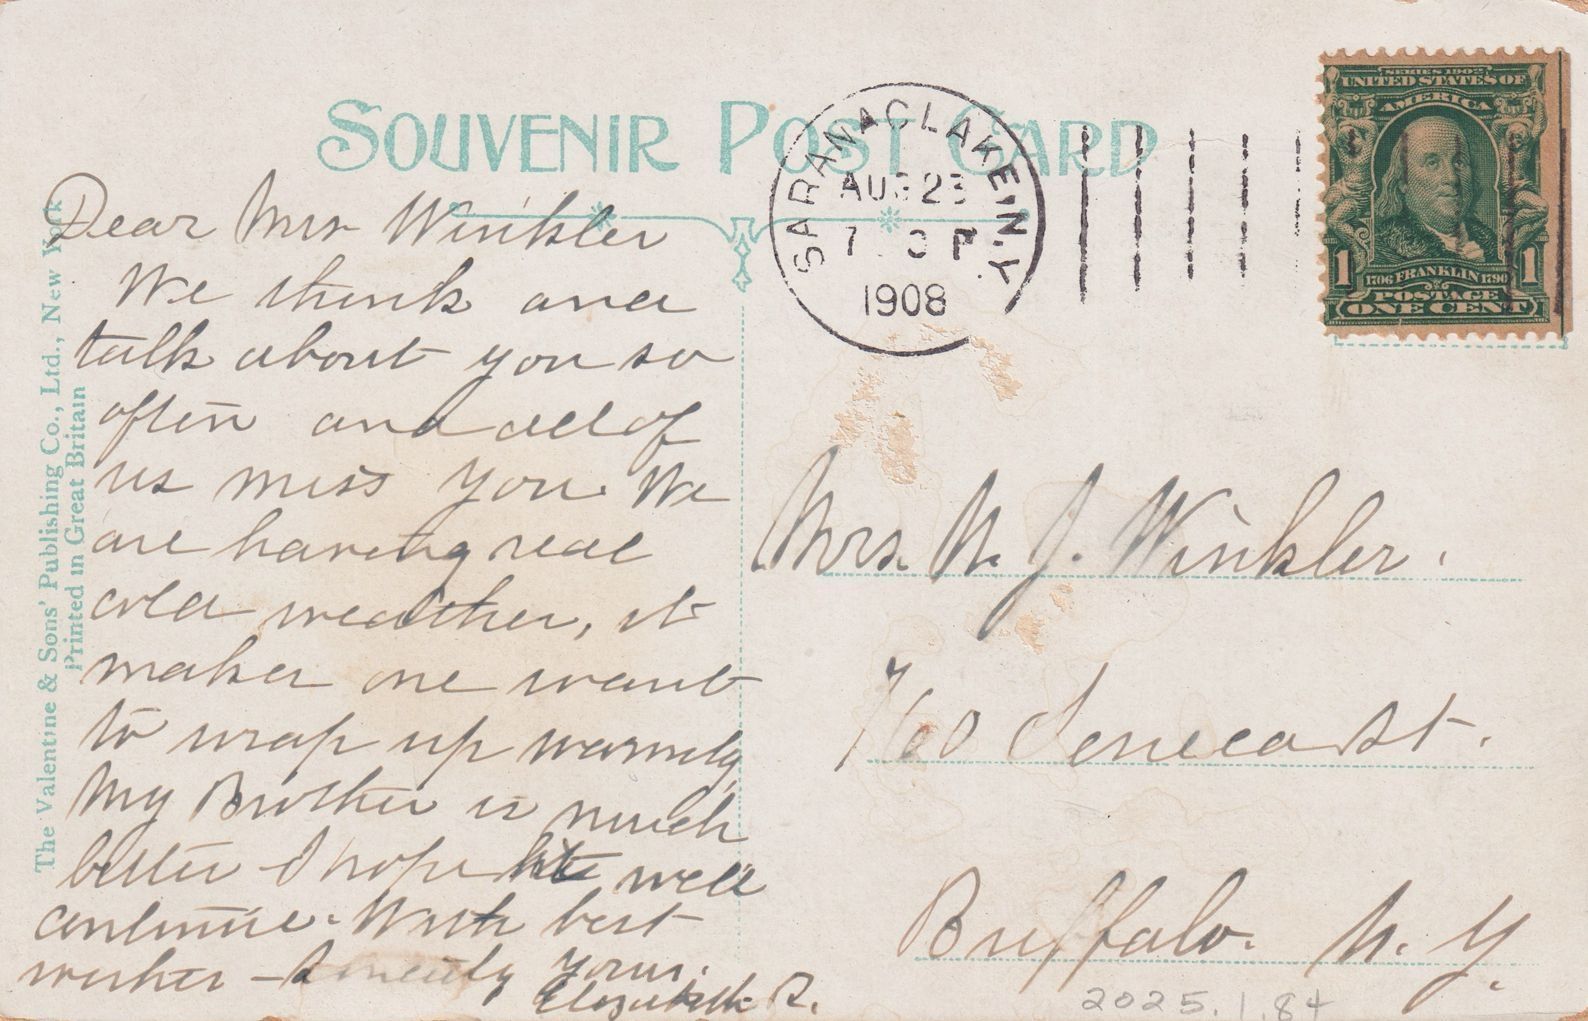 SOUVENIR POST CARD
SARANAC LAKE, N.Y.
AUG 23
7 P
1908
SERIES 1902
UNITED STATES OF
AMERICA
1 1706 FRANKLIN 1790 1
POSTAGE
ONE CENT
The Valentine & Sons' Publishing Co., Ltd., New York
Printed in Great Britain
Dear Mrs Winkler
We think and
talk about you so
often and all of
us miss you. We
are having real
cold weather, it
makes one want
to wrap up warmly,
My Brother is much
better I hope he will
continue. With best
wishes - Sincerely yours.
Elizabeth R.
Mrs. W. J. Winkler.
760 Seneca St.
Buffalo. N. Y.
2025.1.84